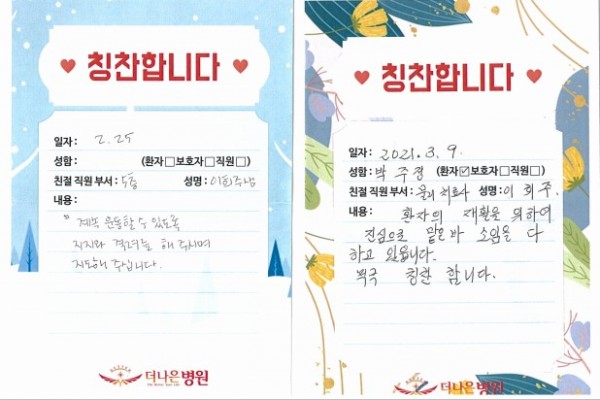 칭찬합니다
일자: 2.25
성함: (환자□보호자□직원□)
친절 직원 부서: 5층 성명: 이희주님
내용:
계속 운동할 수 있도록
지지와 격려를 해 주시며
지도해 주십니다.
더나은병원
칭찬합니다
일자: 2021. 3. 9.
성함: 박주경 (환자☑보호자□직원□)
친절 직원 부서: 물리치료사 성명: 이희주
내용: 환자의 재활을 위하여
진심으로 맡은바 소임을 다
하고 있읍니다.
적극 칭찬 합니다.
더나은병원